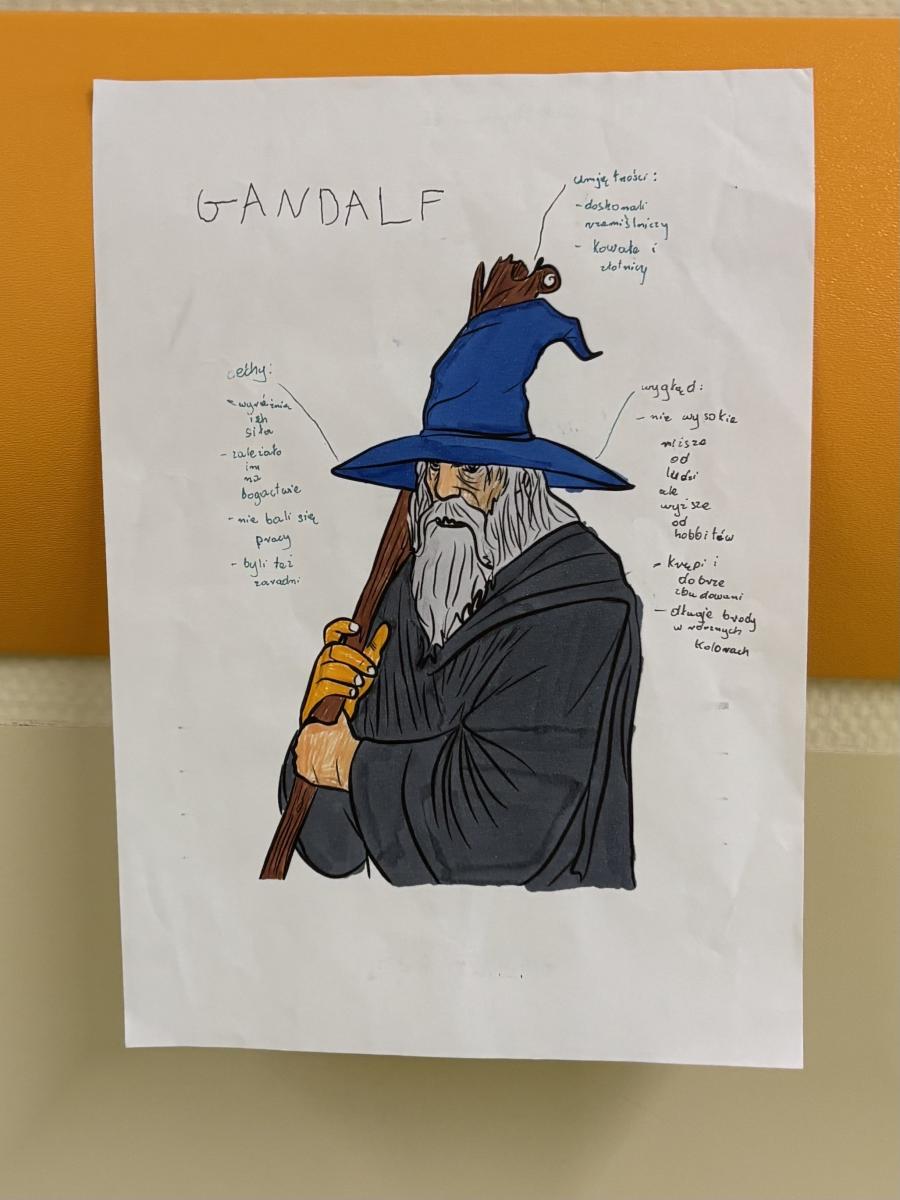 GANDALF
umiętności:
- doskonali
rzemiślniczy
- kowale i
złotnicy
cechy:
- wyróżnia
ich
siła
- zależało
im
na
bogactwie
- nie bali się
pracy
- byli też
zaradni
wygląd:
- nie wysokie
niższe
od
ludzi
ale
wyższe
od
hobbitów
- krępi i
dobrze
zbudowani
- długie brody
w różnych
kolorach